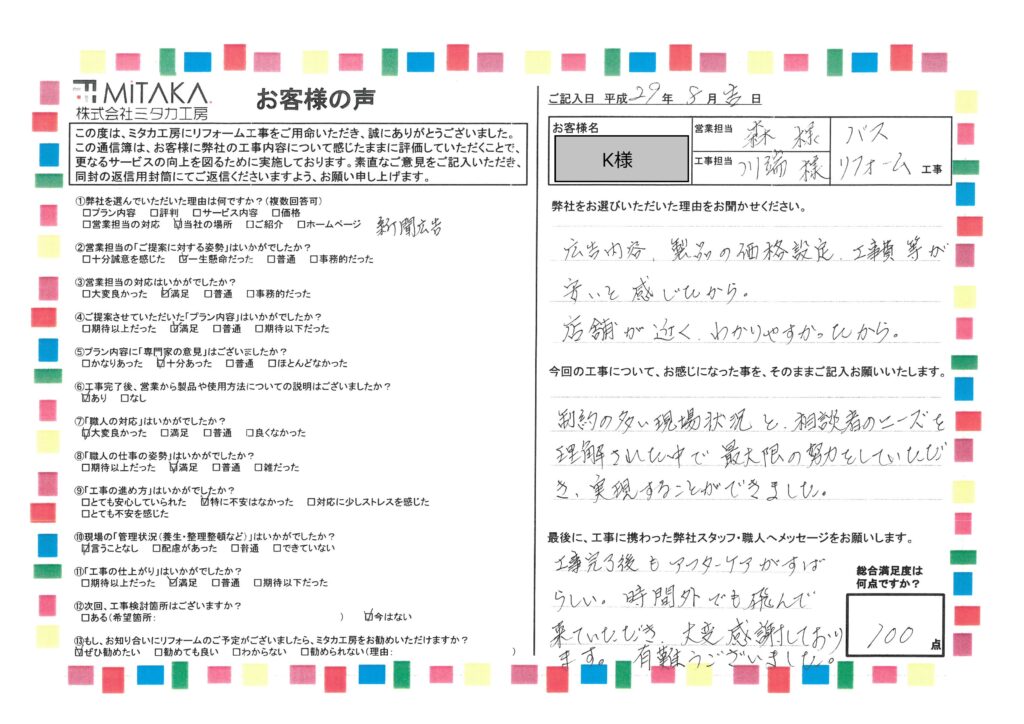 MiTAKA
株式会社ミタカ工房
お客様の声
この度は、ミタカ工房にリフォーム工事をご用命いただき、誠にありがとうございました。
この通信簿は、お客様に弊社の工事内容について感じたままに評価していただくことで、
更なるサービスの向上を図るために実施しております。素直なご意見をご記入いただき、
同封の返信用封筒にてご返信くださいますよう、お願い申し上げます。
①弊社を選んでいただいた理由は何ですか?(複数回答可)
□プラン内容 □評判 □サービス内容 □価格
□営業担当の対応 ☑当社の場所 □ご紹介 □ホームページ 新聞広告
②営業担当の「ご提案に対する姿勢」はいかがでしたか?
□十分誠意を感じた ☑一生懸命だった □普通 □事務的だった
③営業担当の対応はいかがでしたか?
□大変良かった ☑満足 □普通 □事務的だった
④ご提案させていただいた「プラン内容」はいかがでしたか?
□期待以上だった ☑満足 □普通 □期待以下だった
⑤プラン内容に「専門家の意見」はございましたか?
□かなりあった ☑十分あった □普通 □ほとんどなかった
⑥工事完了後、営業から製品や使用方法についての説明はございましたか?
☑あり □なし
⑦「職人の対応」はいかがでしたか?
☑大変良かった □満足 □普通 □良くなかった
⑧「職人の仕事の姿勢」はいかがでしたか?
□期待以上だった ☑満足 □普通 □雑だった
⑨「工事の進め方」はいかがでしたか?
□とても安心していられた ☑特に不安はなかった □対応に少しストレスを感じた
□とても不安を感じた
⑩現場の「管理状況(養生・整理整頓など)」はいかがでしたか?
☑言うことなし □配慮があった □普通 □できていない
⑪「工事の仕上がり」はいかがでしたか?
□期待以上だった ☑満足 □普通 □期待以下だった
⑫次回、工事検討箇所はございますか?
□ある(希望箇所: ) ☑今はない
⑬もし、お知り合いにリフォームのご予定がございましたら、ミタカ工房をお勧めいただけますか?
☑ぜひ勧めたい □勧めても良い □わからない □勧められない(理由: )
ご記入日 平成 29 年 8 月 吉 日
お客様名 K様
営業担当 森 様
工事担当 川端 様
バス
リフォーム 工事
弊社をお選びいただいた理由をお聞かせください。
広告内容、製品の価格設定、工事費等が
安いと感じたから。
店舗が近く、わかりやすかったから。
今回の工事について、お感じになった事を、そのままご記入お願いいたします。
制約の多い現場状況と、相談者のニーズを
理解された中で最大限の努力をしていただ
き、実現することができました。
最後に、工事に携わった弊社スタッフ・職人へメッセージをお願いします。
工事完了後もアフターケアがすば
らしい。時間外でも飛んで
来ていただき、大変感謝しており
ます。 有難うございました。
総合満足度は
何点ですか?
100 点